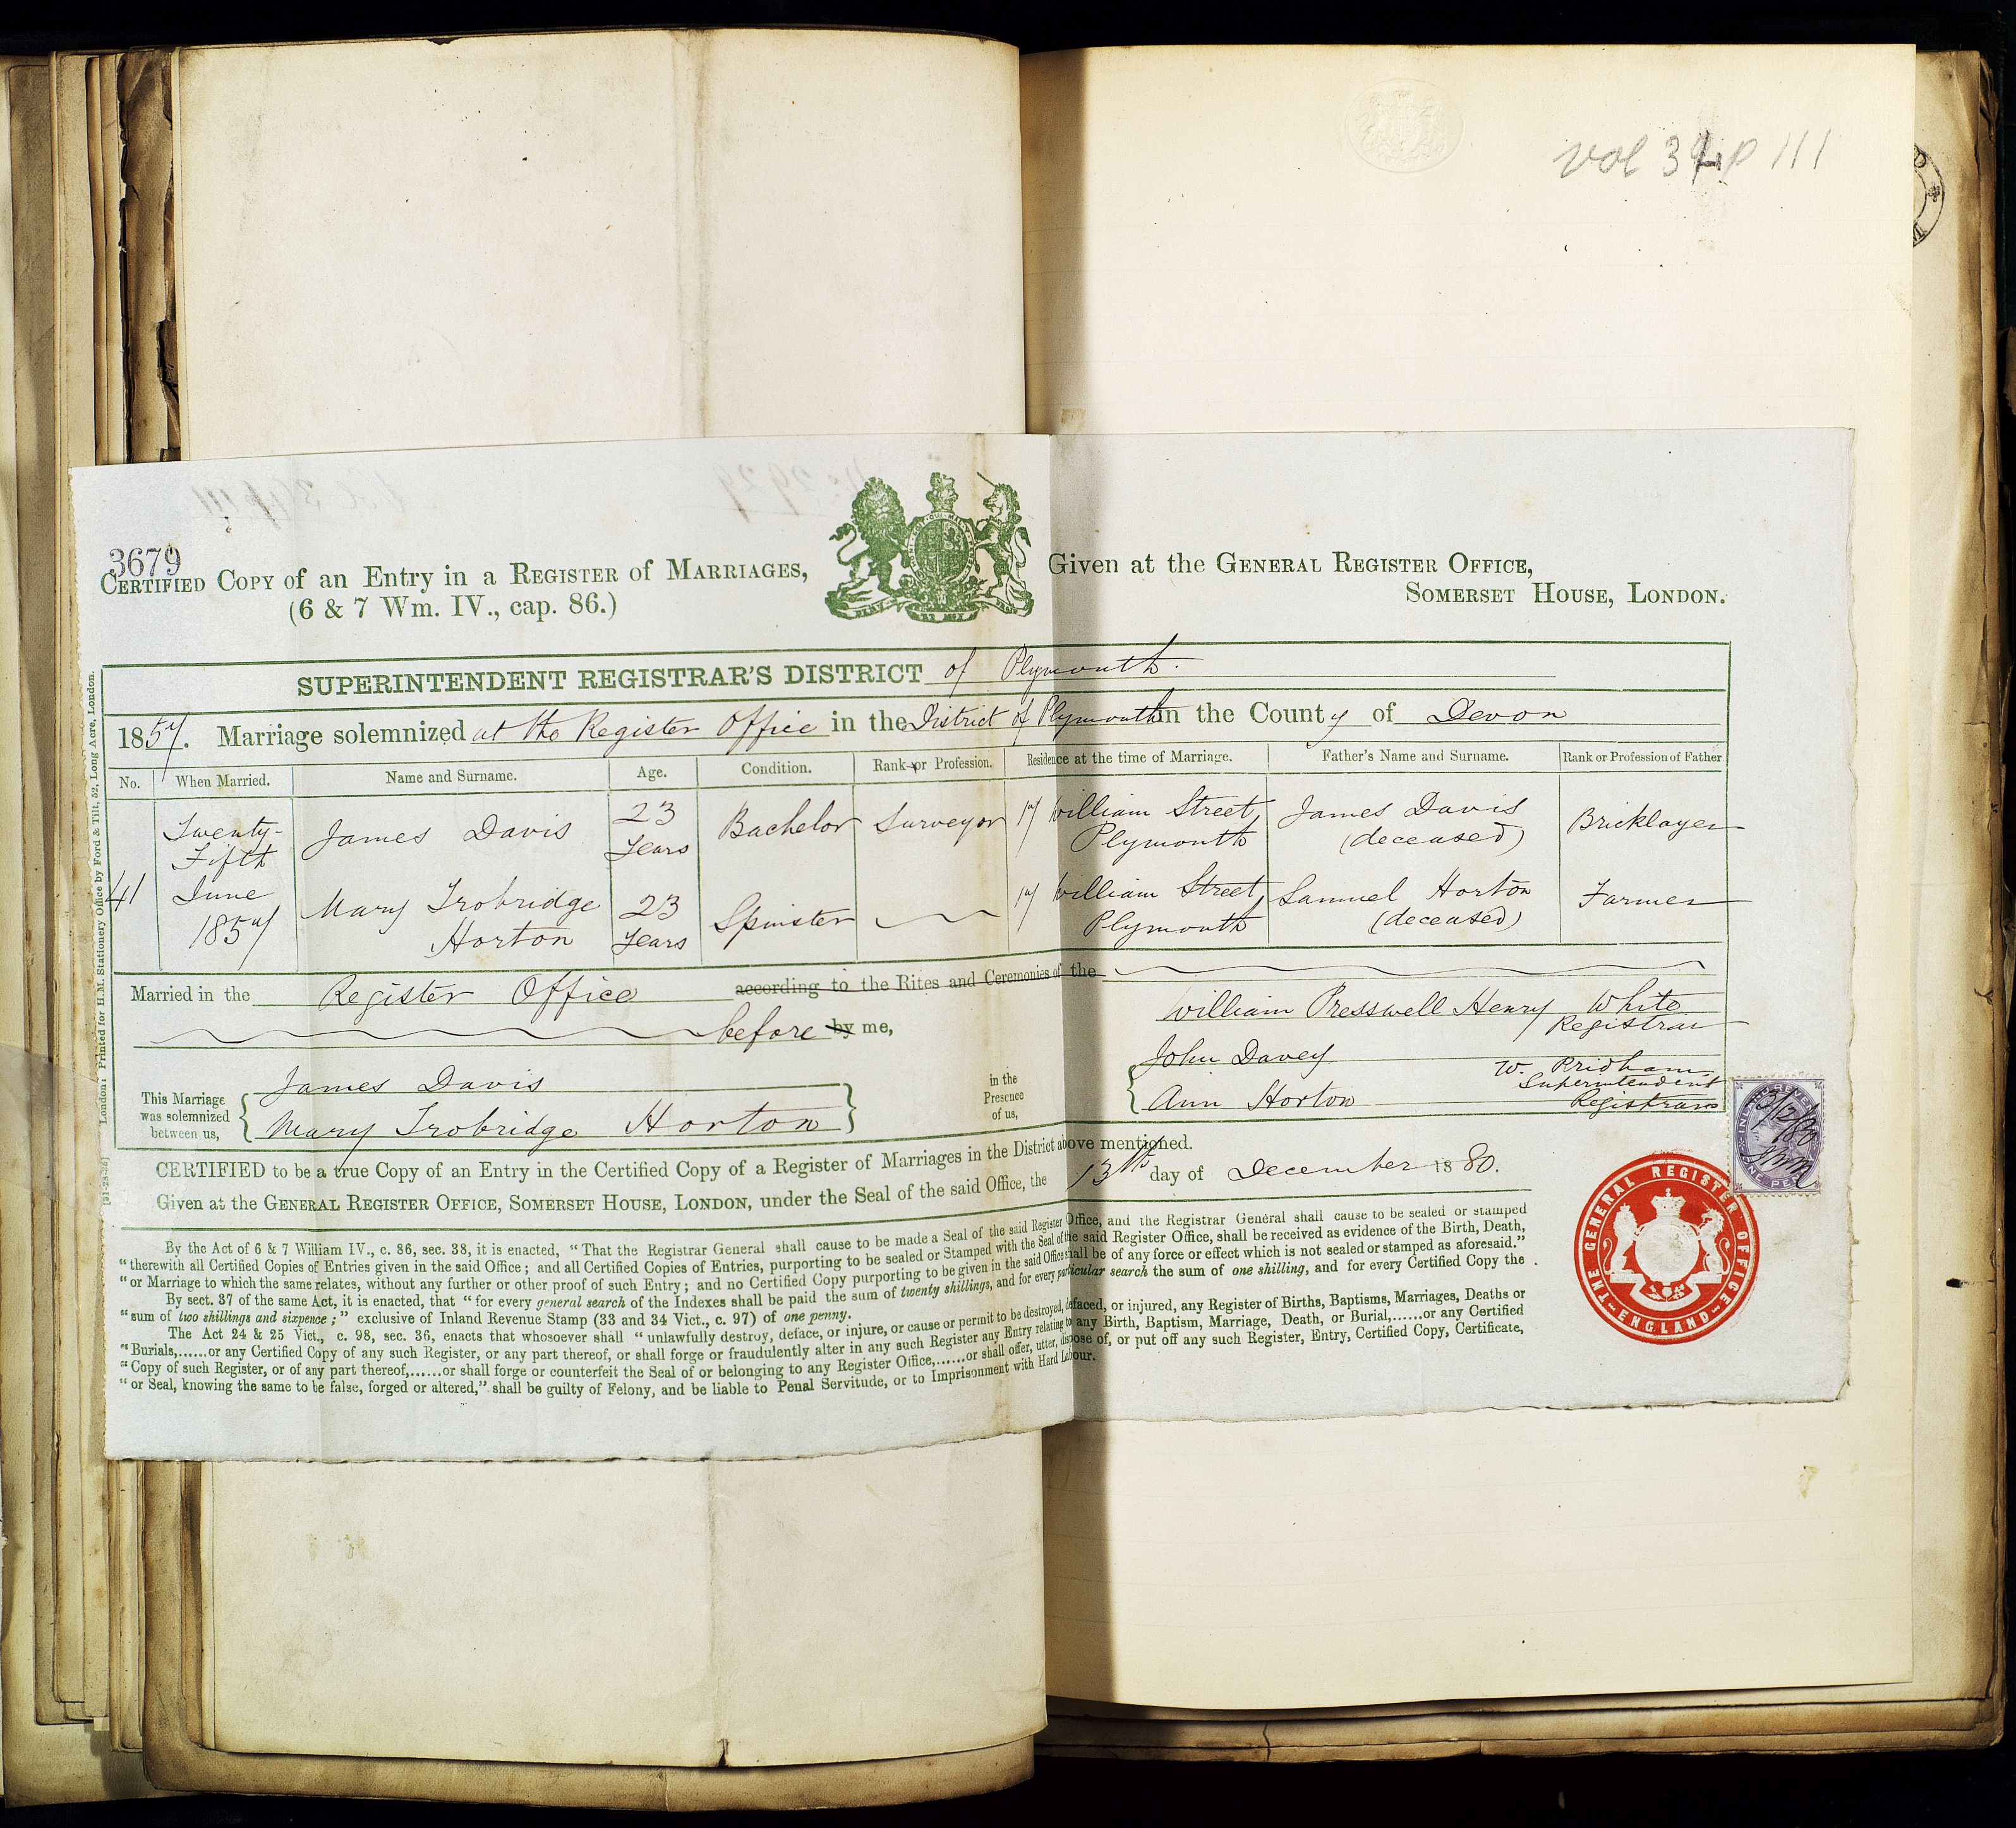 vol 34 p 111
3679
CERTIFIED COPY of an Entry in a REGISTER of MARRIAGES,
(6 & 7 Wm. IV., cap. 86.)
Given at the GENERAL REGISTER OFFICE,
SOMERSET HOUSE, LONDON.
SUPERINTENDENT REGISTRAR'S DISTRICT of Plymouth.
1857. Marriage solemnized at the Register Office in the District of Plymouth in the County of Devon
No. When Married. Name and Surname. Age. Condition. Rank or Profession. Residence at the time of Marriage. Father's Name and Surname. Rank or Profession of Father
41 Twenty-Fifth June 1857
James Davis 23 Years Bachelor Surveyor 17 William Street, Plymouth James Davis (deceased) Bricklayer
Mary Trobridge Horton 23 Years Spinster 17 William Street, Plymouth Samuel Horton (deceased) Farmer
Married in the Register Office according to the Rites and Ceremonies of the
before by me,
William Presswell Henry White
Registrar
This Marriage was solemnized between us,
James Davis
Mary Trobridge Horton
in the Presence of us,
John Davey
Ann Horton
W. Pridham
Superintendent
Registrar
CERTIFIED to be a true Copy of an Entry in the Certified Copy of a Register of Marriages in the District above mentioned.
Given at the GENERAL REGISTER OFFICE, SOMERSET HOUSE, LONDON, under the Seal of the said Office, the 13th day of December 1880.
By the Act of 6 & 7 William IV., c. 86, sec. 38, it is enacted, "That the Registrar General shall cause to be made a Seal of the said Register Office, and the Registrar General shall cause to be sealed or stamped
"therewith all Certified Copies of Entries given in the said Office; and all Certified Copies of Entries, purporting to be sealed or Stamped with the Seal of the said Register Office, shall be received as evidence of the Birth, Death,
"or Marriage to which the same relates, without any further or other proof of such Entry; and no Certified Copy purporting to be given in the said Office shall be of any force or effect which is not sealed or stamped as aforesaid."
By sect. 37 of the same Act, it is enacted, that "for every general search of the Indexes shall be paid the sum of twenty shillings, and for every particular search the sum of one shilling, and for every Certified Copy the
"sum of two shillings and sixpence;" exclusive of Inland Revenue Stamp (33 and 34 Vict., c. 97) of one penny.
The Act 24 & 25 Vict., c. 98, sec. 36, enacts that whosoever shall "unlawfully destroy, deface, or injure, or cause or permit to be destroyed, defaced, or injured, any Register of Births, Baptisms, Marriages, Deaths or
"Burials,......or any Certified Copy of any such Register, or any part thereof, or shall forge or fraudulently alter in any such Register any Entry relating to any Birth, Baptism, Marriage, Death, or Burial,......or any Certified
"Copy of such Register, or of any part thereof,......or shall forge or counterfeit the Seal of or belonging to any Register Office,......or shall offer, utter, dispose of, or put off any such Register, Entry, Certified Copy, Certificate,
"or Seal, knowing the same to be false, forged or altered," shall be guilty of Felony, and be liable to Penal Servitude, or to Imprisonment with Hard Labour.
London: Printed for H.M. Stationery Office by Ford & Tilt, 52, Long Acre, London.
THE GENERAL REGISTER OFFICE
ENGLAND
INLAND REVENUE
ONE PENNY